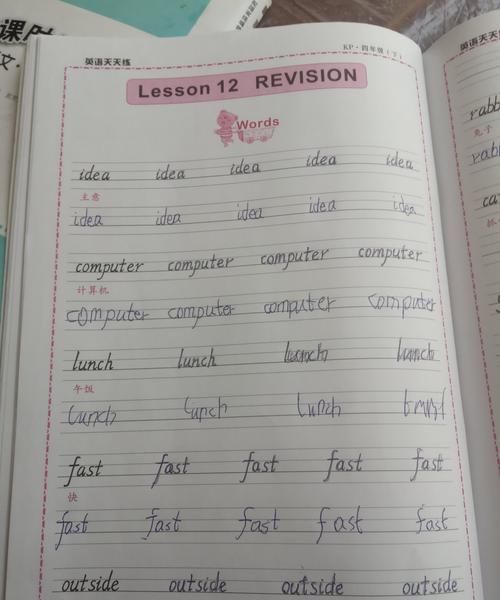 课时
文·
英语天天练
KP·四年级（下）
英语天天练
Lesson 12 REVISION
Words
idea idea idea idea idea
主意
idea idea idea idea idea
computer computer computer computer
计算机
computer computer computer computer
lunch lunch lunch lunch
午饭
lunch lunch lunch
fast fast fast fast fast
快
fast fast fast fast fast
outside outside outside outside
rabb
兔子
rabb
ca